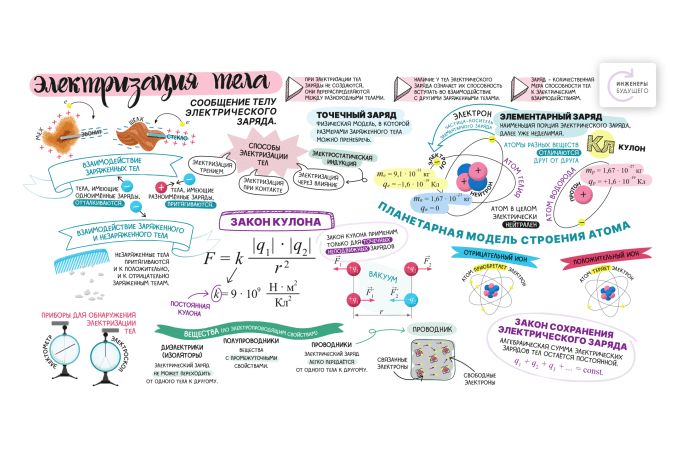 Электризация тела
СООБЩЕНИЕ ТЕЛУ
ЭЛЕКТРИЧЕСКОГО
ЗАРЯДА.
ПРИ ЭЛЕКТРИЗАЦИИ ТЕЛ
ЗАРЯДЫ НЕ СОЗДАЮТСЯ,
ОНИ ПЕРЕРАСПРЕДЕЛЯЮТСЯ
МЕЖДУ РАЗНОРОДНЫМИ ТЕЛАМИ.
НАЛИЧИЕ У ТЕЛ ЭЛЕКТРИЧЕСКОГО
ЗАРЯДА ОЗНАЧАЕТ ИХ СПОСОБНОСТЬ
ВСТУПАТЬ ВО ВЗАИМОДЕЙСТВИЕ
С ДРУГИМИ ЗАРЯЖЕННЫМИ ТЕЛАМИ.
ЗАРЯД – КОЛИЧЕСТВЕННАЯ
МЕРА СПОСОБНОСТИ ТЕЛ
К ЭЛЕКТРИЧЕСКИМ
ВЗАИМОДЕЙСТВИЯМ.
ИНЖЕНЕРЫ
БУДУЩЕГО
МЕХ
ЭБОНИТ
ШЁЛК
СТЕКЛО
ТОЧЕЧНЫЙ ЗАРЯД
ФИЗИЧЕСКАЯ МОДЕЛЬ, В КОТОРОЙ
РАЗМЕРАМИ ЗАРЯЖЕННОГО ТЕЛА
МОЖНО ПРЕНЕБРЕЧЬ.
ЭЛЕКТРОН
ЧАСТИЦА-НОСИТЕЛЬ
ЭЛЕМЕНТАРНОГО ЗАРЯДА
ЭЛЕМЕНТАРНЫЙ ЗАРЯД
НАИМЕНЬШАЯ ПОРЦИЯ ЭЛЕКТРИЧЕСКОГО ЗАРЯДА,
ДАЛЕЕ УЖЕ НЕДЕЛИМАЯ.
АТОМЫ РАЗНЫХ ВЕЩЕСТВ
ОТЛИЧАЮТСЯ
ДРУГ ОТ ДРУГА
Кл КУЛОН
ВЗАИМОДЕЙСТВИЕ
ЗАРЯЖЕННЫХ ТЕЛ
ТЕЛА, ИМЕЮЩИЕ
ОДНОИМЁННЫЕ ЗАРЯДЫ,
ОТТАЛКИВАЮТСЯ.
ТЕЛА, ИМЕЮЩИЕ
РАЗНОИМЁННЫЕ ЗАРЯДЫ,
ПРИТЯГИВАЮТСЯ.
СПОСОБЫ
ЭЛЕКТРИЗАЦИИ
ТЕЛ
ЭЛЕКТРИЗАЦИЯ
ТРЕНИЕМ
ЭЛЕКТРИЗАЦИЯ
ПРИ КОНТАКТЕ
ЭЛЕКТРОСТАТИЧЕСКАЯ
ИНДУКЦИЯ
ЭЛЕКТРИЗАЦИЯ
ЧЕРЕЗ ВЛИЯНИЕ
ЭЛЕКТРОН
mₑ = 9,1 · 10⁻³¹ кг
qₑ = −1,6 · 10⁻¹⁹ Кл
НЕЙТРОН
mₙ = 1,67 · 10⁻²⁷ кг
qₙ = 0
АТОМ ГЕЛИЯ
АТОМ В ЦЕЛОМ
ЭЛЕКТРИЧЕСКИ
НЕЙТРАЛЕН
АТОМ ВОДОРОДА
ПРОТОН
mₚ = 1,67 · 10⁻²⁷ кг
qₚ = +1,6 · 10⁻¹⁹ Кл
ПЛАНЕТАРНАЯ МОДЕЛЬ СТРОЕНИЯ АТОМА
ВЗАИМОДЕЙСТВИЕ ЗАРЯЖЕННОГО
И НЕЗАРЯЖЕННОГО ТЕЛ
НЕЗАРЯЖЕННЫЕ ТЕЛА
ПРИТЯГИВАЮТСЯ
И К ПОЛОЖИТЕЛЬНО,
И К ОТРИЦАТЕЛЬНО
ЗАРЯЖЕННЫМ ТЕЛАМ.
ЗАКОН КУЛОНА
F = k |q₁| · |q₂| / r²
k = 9 · 10⁹ Н · м² / Кл²
ПОСТОЯННАЯ
КУЛОНА
ЗАКОН КУЛОНА ПРИМЕНИМ
ТОЛЬКО ДЛЯ ТОЧЕЧНЫХ
НЕПОДВИЖНЫХ ЗАРЯДОВ
ВАКУУМ
F₁ q₁ q₂ F₂
q₁ F₁ F₂ q₂
r
ОТРИЦАТЕЛЬНЫЙ ИОН
АТОМ ПРИОБРЕТАЕТ ЭЛЕКТРОН
ПОЛОЖИТЕЛЬНЫЙ ИОН
АТОМ ТЕРЯЕТ ЭЛЕКТРОН
ПРИБОРЫ ДЛЯ ОБНАРУЖЕНИЯ
ЭЛЕКТРИЗАЦИИ
ТЕЛ
ЭЛЕКТРОМЕТР
ЭЛЕКТРОСКОП
ВЕЩЕСТВА (ПО ЭЛЕКТРОПРОВОДЯЩИМ СВОЙСТВАМ)
ДИЭЛЕКТРИКИ
(ИЗОЛЯТОРЫ)
ЭЛЕКТРИЧЕСКИЙ ЗАРЯД
НЕ МОЖЕТ ПЕРЕХОДИТЬ
ОТ ОДНОГО ТЕЛА К ДРУГОМУ.
ПОЛУПРОВОДНИКИ
ВЕЩЕСТВА
С ПРОМЕЖУТОЧНЫМИ
СВОЙСТВАМИ.
ПРОВОДНИКИ
ЭЛЕКТРИЧЕСКИЙ ЗАРЯД
ЛЕГКО ПЕРЕДАЁТСЯ
ОТ ОДНОГО ТЕЛА К ДРУГОМУ.
ПРОВОДНИК
СВЯЗАННЫЕ
ЭЛЕКТРОНЫ
СВОБОДНЫЕ
ЭЛЕКТРОНЫ
ЗАКОН СОХРАНЕНИЯ
ЭЛЕКТРИЧЕСКОГО ЗАРЯДА
АЛГЕБРАИЧЕСКАЯ СУММА ЭЛЕКТРИЧЕСКИХ
ЗАРЯДОВ ТЕЛ ОСТАЁТСЯ ПОСТОЯННОЙ.
q₁ + q₂ + q₃ + ... = const.